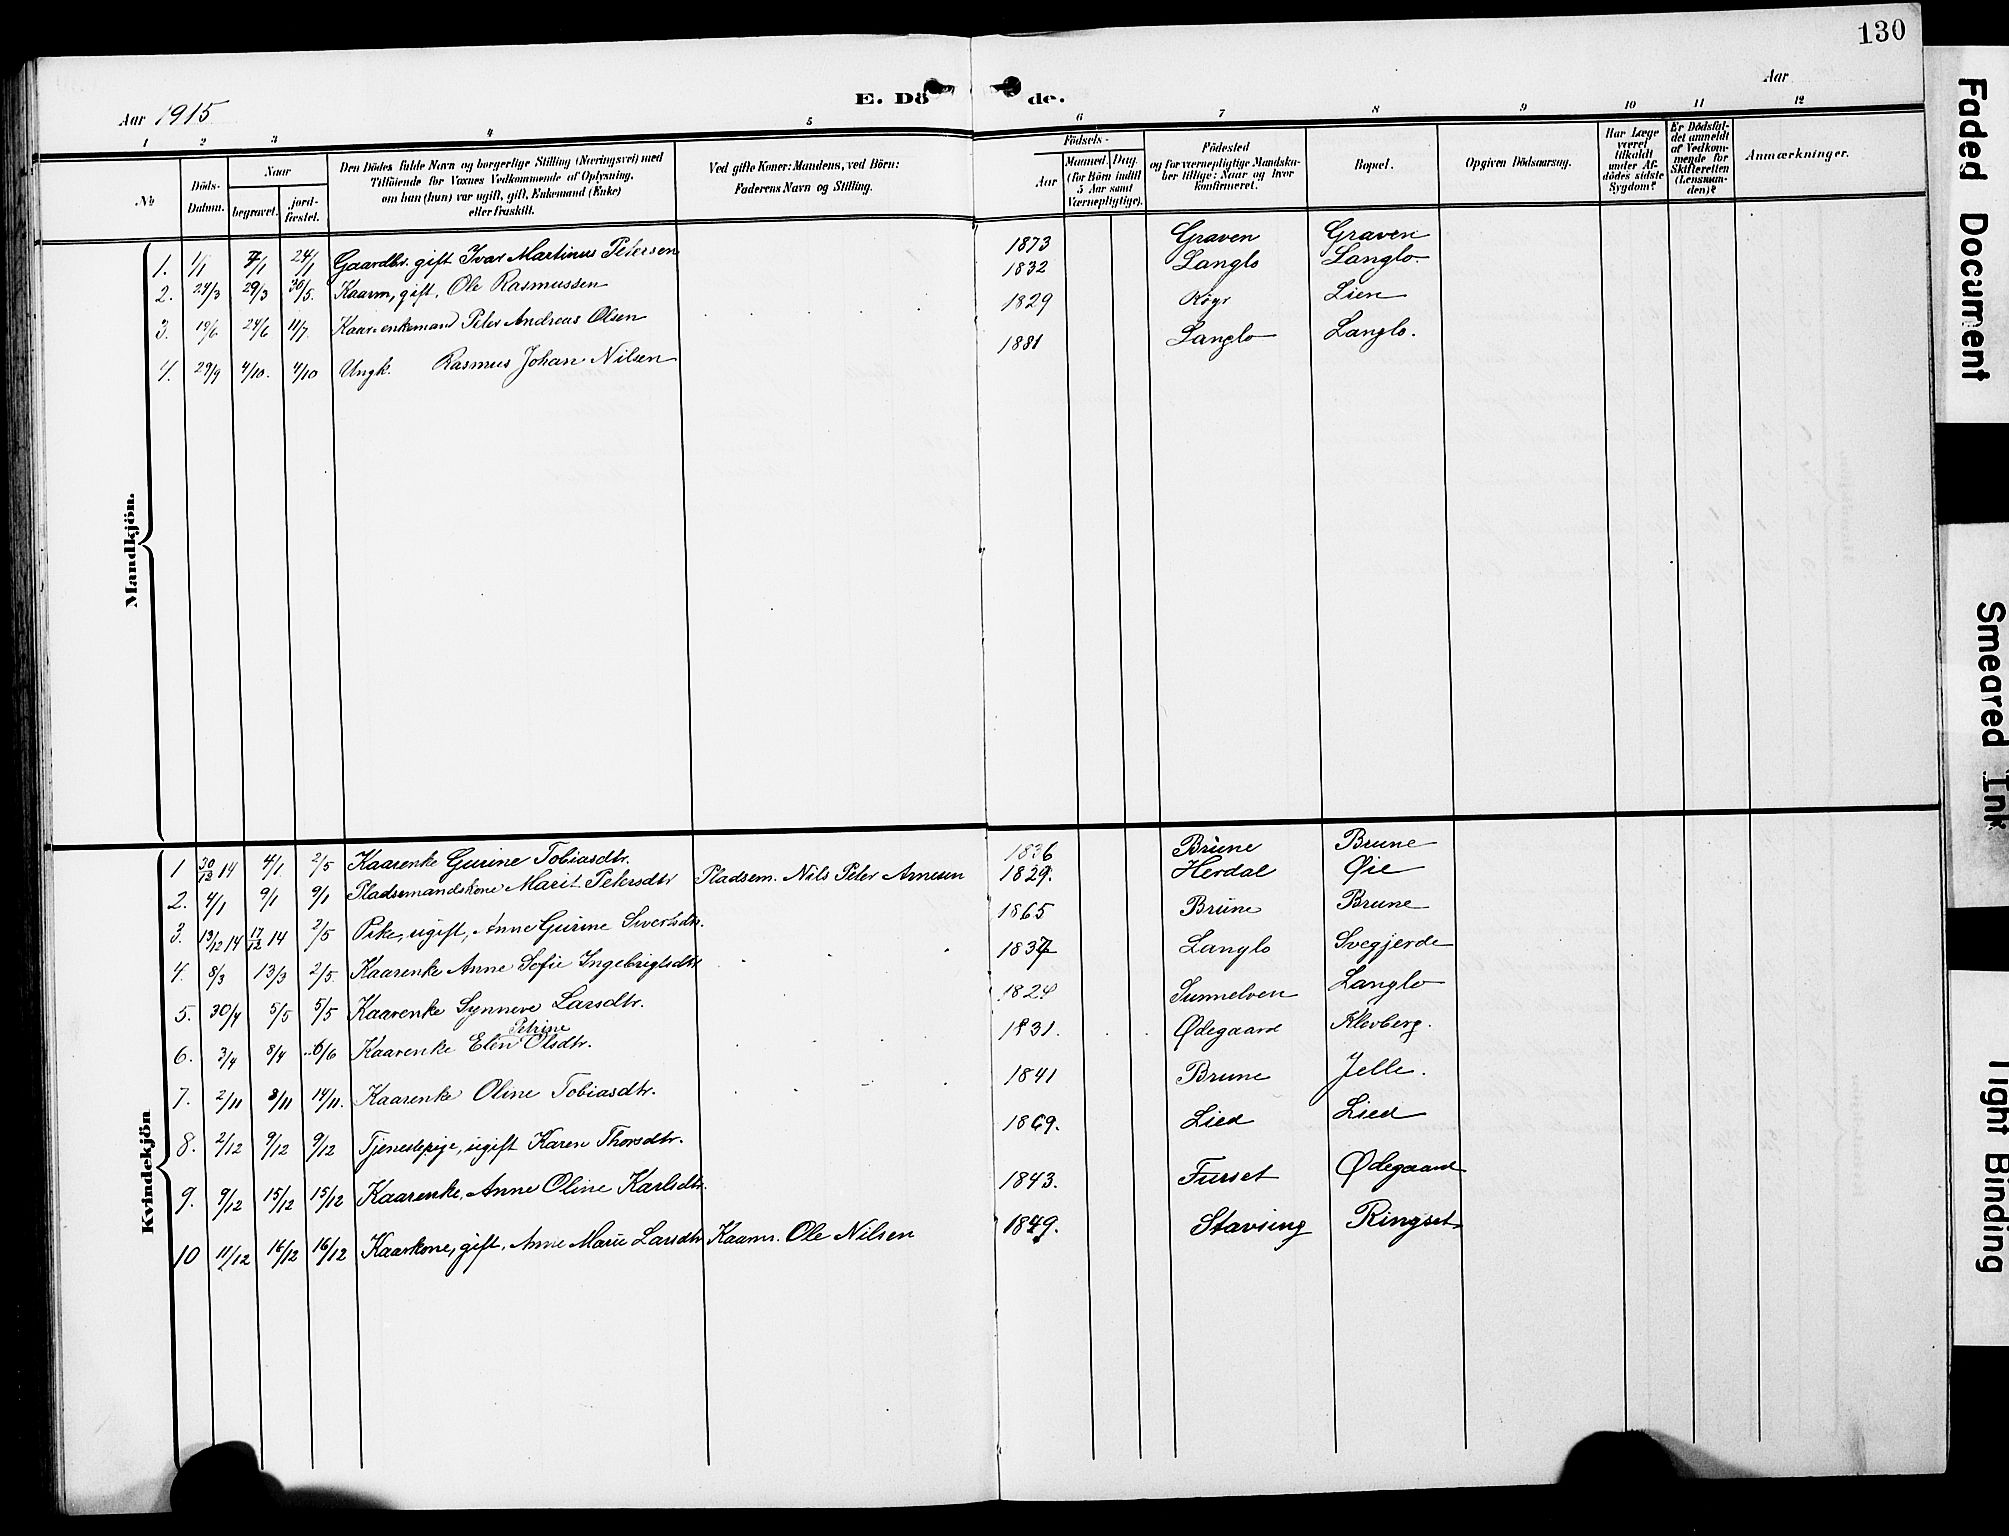 130
Aar 1915
E. Dö de.
Aar
1 2 3 4 5 6 7 8 9 10 11 12
No
Döds-
Datum.
Naar
begravet.
jord-
fæstet.
Den Dödes fulde Navn og borgerlige Stilling (Næringsvei) med
Tilföiende for Voxnes Vedkommende af Oplysning,
om han (hun) var ugift, gift, Enkemand (Enke)
eller fraskilt.
Ved gifte Koner: Mandens, ved Börn:
Faderens Navn og Stilling.
Födsels-
Aar
Maaned. Dag.
(for Börn indtil
5 Aar samt
Værnepligtige).
Födested
og for værnepligtige Mandska-
ber tillige: Naar og hvor
konfirmeret.
Bopæl.
Opgiven Dödsaarsag.
Har Læge
været
tilkaldt
under Af-
dødes sidste
Sygdom?
Er Dødsfal-
det anmeldt
af Vedkom-
mende for
Skifteretten
(Lensman-
den)?
Anmærkninger.
Mandkjön.
1. 1/1 7/1 24/1 Gaardbr. gift Ivar Martinus Petersen 1873 Graven Graven
2. 24/3 29/3 30/5. Kaarm, gift, Ole Rasmussen 1832 Langlo Langlo.
3. 19/6 24/6 11/7. Kaar. enkemand Peter Andreas Olsen 1829 Røyr Lien
4. 29/9 4/10. 4/10 Ungk. Rasmus Johan Nilsen 1881 Langlo Langlo.
Kvindekjön
1 30/12 14 4/1 2/5 Kaarenke Gurine Tobiasdtr. 1836 Brune Brune
2. 4/1 9/1 9/1 Pladsemandskone Marit Petersdtr Pladsem. Nils Peter Arnesen 1829. Herdal Øie
3. 13/12 14 17/12 14 2/5 Pike, ugift, Anne Gurine Sivertsdtr. 1865 Brune Brune
4. 8/3 13/3 2/5. Kaarenke Anne Sofie Ingebrigtsdtr 1837 Langlo Svegjerde
5. 30/4 5/5 5/5 Kaarenke Synneve Larsdtr. 1824 Sunnelven Langlo
6. 3/4 8/4 6/6 Kaarenke Elen Petrine Olsdtr. 1831. Ødegaard Klovberg.
7. 2/11 8/11 14/11. Kaarenke Oline Tobiasdtr. 1841 Brune Jelle.
8. 2/12 9/12 9/12 Tjenestepige, ugift Karen Thorsdtr. 1869. Lied Lied
9. 9/12 15/12 15/12 Kaarenke, Anne Oline Karlsdtr. 1843. Furset Ødegaard
10 11/12 16/12 16/12 Kaarkone, gift, Anne Marie Larsdtr Kaarm. Ole Nilsen 1849. Stavseng Ringset
Faded Document
Smeared Ink
Tight Binding